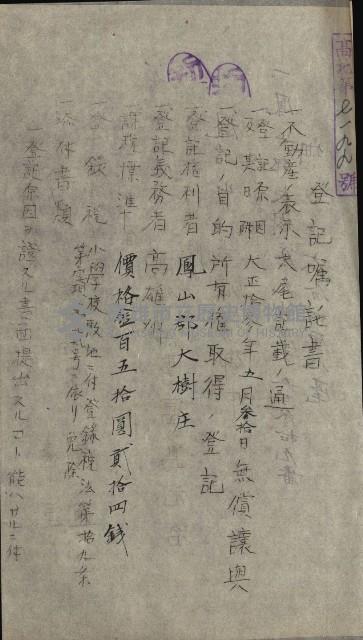 登記嘱託書
一不動産ノ表示 末尾記載ノ通
一登記原因 大正拾 年五月参拾日無償讓與
一登記ノ目的 所有權取得ノ登記
一登記權利者 鳳山郡大樹庄
一登記義務者 高雄州
一課税標準 價格壹百五拾圓貳拾四錢
一登錄税 小學校敷地ニ付登錄税法第拾九条
第 号ニ依リ免除
一添付書類
一登記原因ヲ證スル書面提出スルコト能ハサルニ付